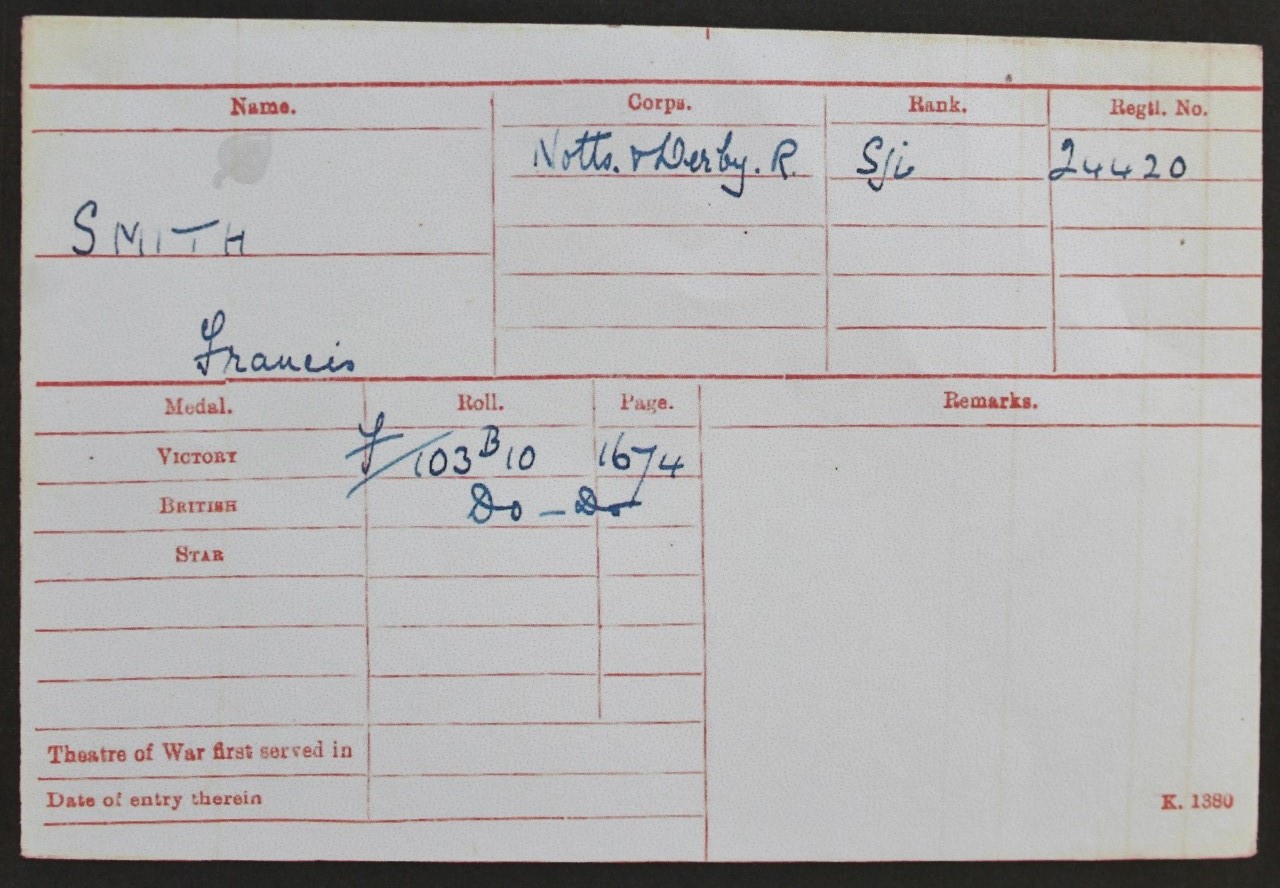 Name. Corps. Rank. Regtl. No.
Notts. & Derby. R. Sjt 24420
SMITH
Francis
Medal. Roll. Page. Remarks.
VICTORY F/103 B 10 1674
BRITISH Do - Do
STAR
Theatre of War first served in
Date of entry therein
K. 1380